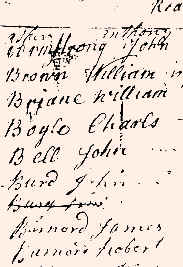 Rea
Anthony
Armstrong John
Brown William
Brjane William
Boyle Charls
Bell John
Burd John
Burnard James
Robert